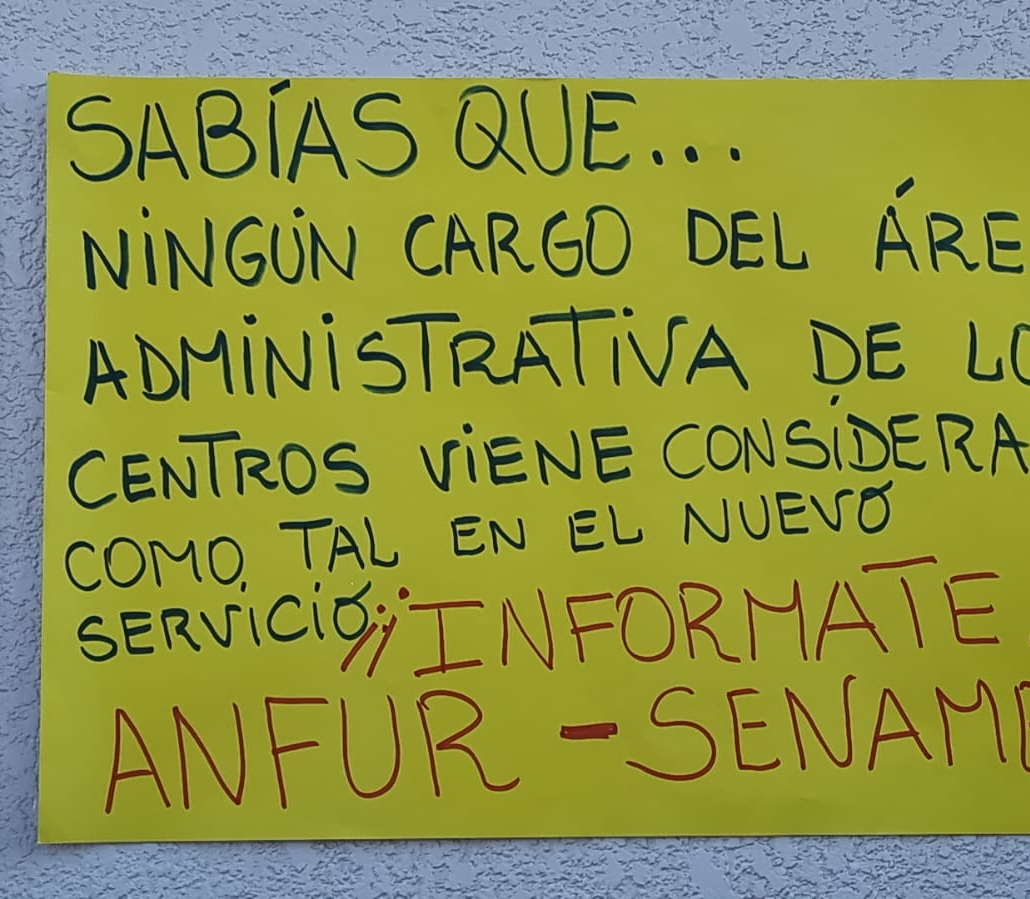 SABÍAS QUE...
NINGÚN CARGO DEL ÁRE
ADMINISTRATIVA DE LO
CENTROS VIENE CONSIDERA
COMO TAL EN EL NUEVO
SERVICIO ¡¡INFORMATE
ANFUR - SENAM